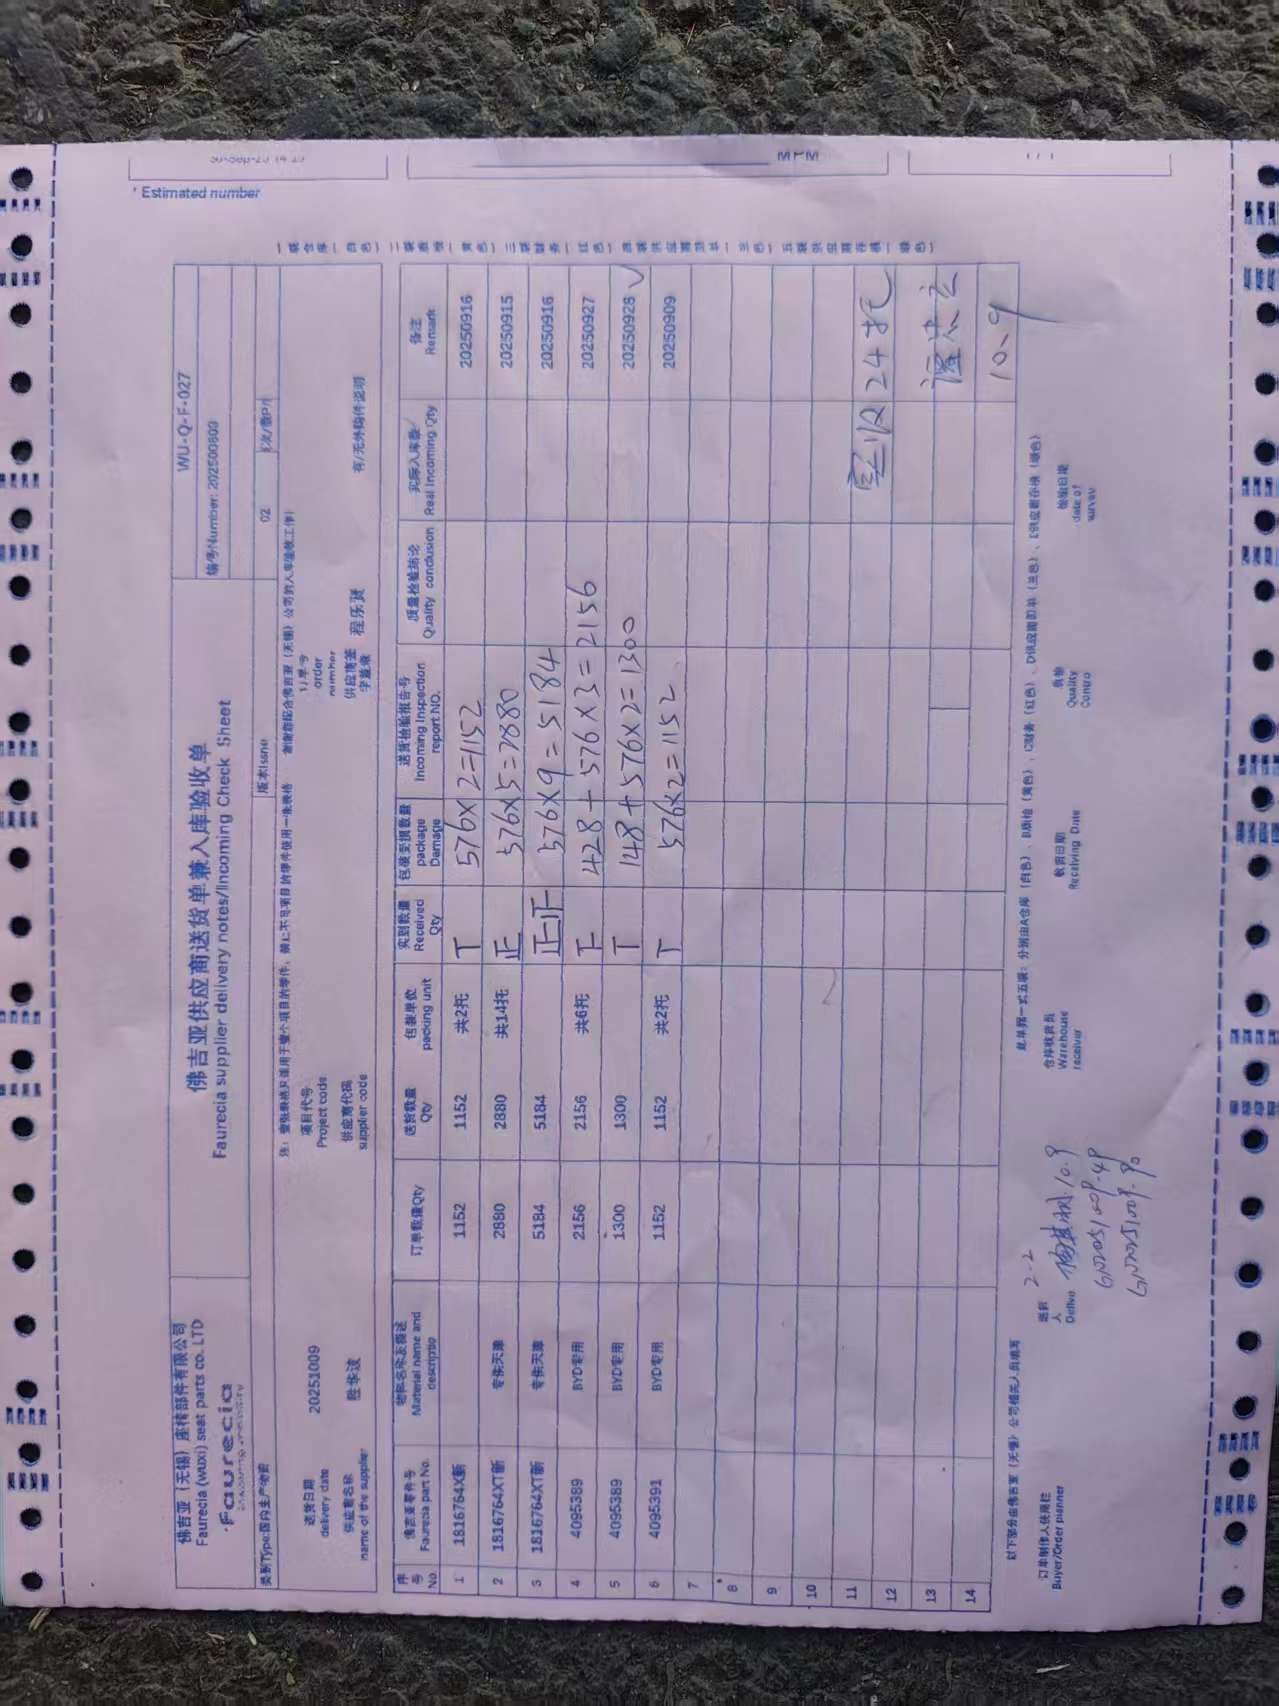 * Estimated number
佛吉亚（无锡）座椅部件有限公司
Faurecia (wuxi) seat parts co. LTD
faurecia
佛吉亚供应商送货单兼入库验收单
Faurecia supplier delivery notes/Incoming Check Sheet
WU-Q-F-027
编号Number: 202500809
类别Type:国内生产物资
版本Issue 02
送货日期 delivery date 20251009 项目代号 Project code 订单号 order number
供应商名称 name of the supplier 陆华波 供应商代码 supplier code 供应商签字盖章 程乐贤 有/无外购件说明
序号 No. 佛吉亚零件号 Faurecia part No. 物料名称及描述 Material name and descriptio 订单数量Qty 送货数量 Qty 包装单位 packing unit 实到数量 Received Qty 包装受损数量 package Damage 送货检验报告号 Incoming Inspection report NO. 质量检验结论 Quality conclusion 实际入库数 Real Incoming Qty 备注 Remark
1 1816764X新 1152 1152 共2托 576×2=1152 20250916
2 1816764XT新 专供天津 2880 2880 共14托 正 576×5=2880 20250915
3 1816764XT新 专供天津 5184 5184 576×9=5184 20250916
4 4095389 BYD专用 2156 2156 共6托 428+576×3=2156 20250927
5 4095389 BYD专用 1300 1300 148+576×2=1300 20250928 √
6 4095391 BYD专用 1152 1152 共2托 576×2=1152 20250909
7
8
9
10
11
12 实收24托
13
14 10.9
以下部分由佛吉亚（无锡）公司相关人员填写
此单据一式五联：分别由A仓库（白色）、B质检（黄色）、C财务（红色）、D供应商回单（兰色）、E供应商存根（绿色）
订单制作人使用栏 Buyer/Order planner
送货人 Delive 2-2 10.9
仓库收货员 Warehouse receiver
收货日期 Receiving Date
质检 Quality Contro
检验日期 date of survey